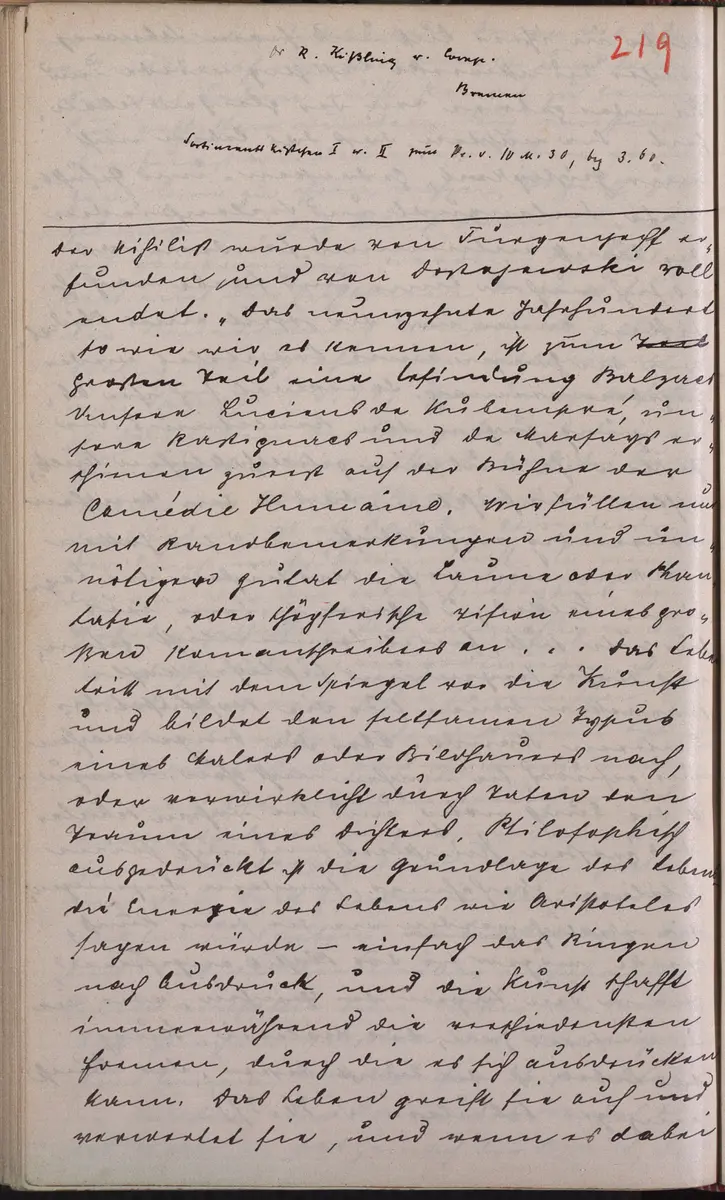 219
R. Kißling u. Comp.
Bremen
Sortimentskistchen I u. II zum Pr. v. 10 M. 30, bzg 3.60.
Der Nihilist wurde von Turgenjeff er-
funden und von Dostojewski voll
endet. „Das neunzehnte Jahrhundert
so wie wir es kennen, ist zum
großen Teil eine Erfindung Balzacs
Unsere Luciens de Rubempré, un-
sere Rastignacs und de Marsays er-
schienen zuerst auf der Bühne der
Comédie Humaine. Wir füllen nur
mit Randbemerkungen und un-
nötigen Zutat die Laune oder Phan
tasie, oder schöpferische Vision eines gro-
ßen Romanschreibers an . . . Das Leben
tritt mit dem Spiegel vor die Kunst
und bildet den seltsamen Typus
eines Malers oder Bildhauers nach,
oder verwirklicht durch Taten den
Traum eines Dichters. Philosophisch
ausgedrückt ist die Grundlage des Lebens
die Energie des Lebens wie Aristoteles
sagen würde – einfach das Ringen
nach Ausdruck, und die Kunst schafft
immerwährend die verschiedensten
Formen, durch die es sich ausdrücken
kann. Das Leben greift sie auf und
verwertet sie, und wenn es dabei